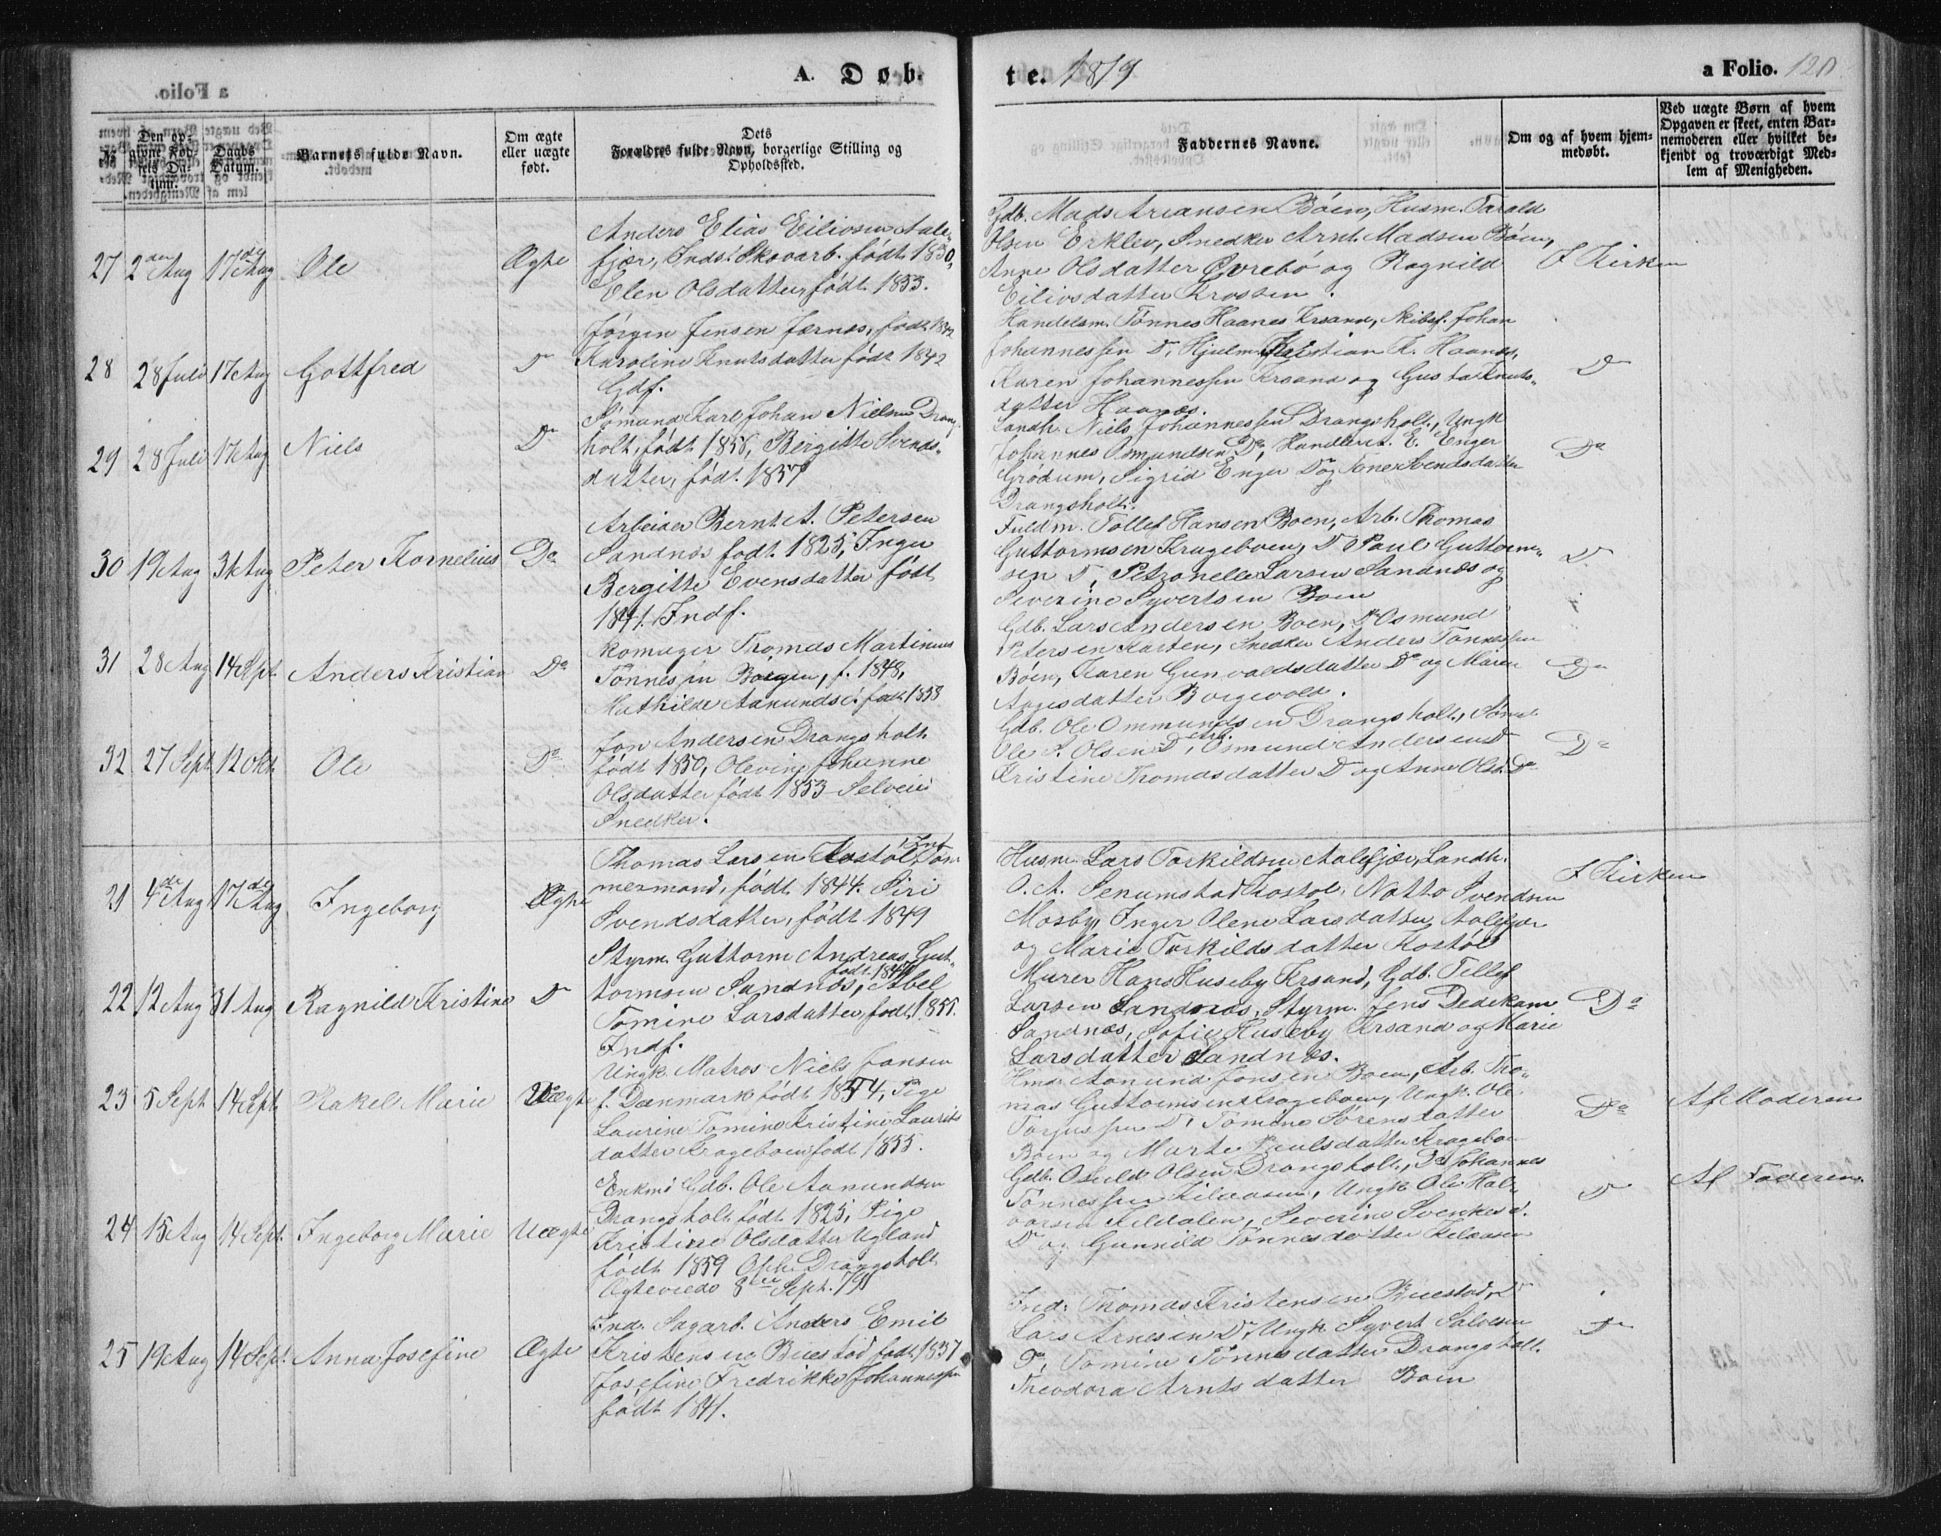 A. Døb-
te. 1879
a Folio. 120
No
Den op-
givne Fød-
sels Da-
tum.
Daabs
Datum.
Barnets fulde Navn.
Om ægte
eller uægte
født.
Dets
Forældres fulde Navn, borgerlige Stilling og
Opholdssted.
Faddernes Navne.
Om og af hvem hjem-
medøbt.
Ved uægte Børn af hvem
Opgaven er skeet, enten Bar-
nemoderen eller hvilket be-
kjendt og troværdigt Med-
lem af Menigheden.
27 2den Aug 17de Aug Ole Ægte
Anders Elias Eilivsen Aale-
fjær, Inds. Skovarb. født 1850,
Elen Olsdatter født 1853.
Gdb. Mads Ariansen Böen, Husm. Tarald
Olsen Erklev, Snedker Arnt Madsen Böen,
Anne Olsdatter Øvrebö og Ragnild
Eilivsdatter Krossen.
I Kirken
28 28 Juli 17 Aug Gottfred Do
Jörgen Jensen Jærnes, født 1842
Karoline Knutsdatter født 1842
Gdf.
Handelsm. Tönnes Haanes Krsand, Skibsf. Johan
Johannessen Do, Hjelm Kristian K. Haanes,
Karen Johannessen Krsand og Gusta Knuts-
datter Haanes.
Do
29 28 Juli 17 Aug Niels Do
Sömand Karl Johan Nielsen Drang
holt, født 1856, Bergitte Svends-
datter, född. 1857
Landh. Niels Johannessen Drangsholt, Ungk
Johannes Osmundsen Do, Handlende. E. Enger
Grödum, Sigrid Enger Do og Tone Svendsdatter
Drangsholt.
Do
30 19 Aug 31 Aug Peter Kornelius Do
Arbeider Bernt A. Petersen
Sandnes født 1825, Inger
Bergitte Evensdatter født
1841. Indf.
Fuldm. Tollef Hansen Boen, Arb. Thomas
Guttormsen Krageboen, Do Paul Guttorm-
sen Do, Petronelle Larsen Sandnes og
Severine Syvertsen Boen
Do
31 28 Aug 14 Sept. Anders Kristian Do
Skomager Thomas Martinius
Tönnessen Böen, f. 1848,
Mathilde Aanundsd. født 1858
Gdb. Lars Andersen Boen, Do Osmund
Petersen Karten, Snedker Anders Tönnessen
Böen, Karen Gunvaldsdatter Do og Maren
Aagesdatter Borgevold.
Do
32 27 Sept 12 Okt. Ole Do
Jon Andersen Drangsholt
født 1850, Olevine Johanne
Olsdatter født 1853 Selveier
Snedker.
Gdb. Ole Ommundsen Drangsholt, Sömd.
Ole P. Olsen Do, Arb. Osmund Andersen Do
Kristine Thomasdatter Do og Anne Olsd. Do
Do
21 4de Aug 17de Aug Ingeborg Ægte
Thomas Larsen Kostöl Inds Töm
mermand, født 1844. Siri
Svendsdatter, født 1849
Husm. Lars Torkildsen Aalefjær, Landh.
O. A. Senumstad Kostöl, Natto Svendsen
Mosby, Inger Olene Larsdatter Aalefjær
og Marie Torkildsdatter Kostöl
I Kirken
22 12 Aug 31 Aug Ragnild Kristine Do
Styrm. Guttorm Andreas Gut-
tormsen Sandnes, født 1847 Abel
Tomine Larsdatter født 1855.
Indf.
Murer Hans Huseby Krsand, Gdb. Tellef
Larsen Sandnes, Styrm. Jens Dedekam
Sandnes, Sofie Huseby Krsand og Marie
Larsdatter Sandnes.
Do
23 5 Sept 14 Sept. Rakel Marie Uægte
Ungk. Matros Niels Jansen
f. Danmark født 1854, Pige
Laurine Tomine Kristine Laurits
datter Krageboen født 1855.
Hmd. Aanund Jonsen Boen, Arb. Tho-
mas Guttormsen Krageboen, Ungk. Ole
Torjussen Do, Tomine Sörensdatter
Boen og Marte Poulsdatter Krageboen
Do Af Moderen
24 15 Aug 14 Sept. Ingeborg Marie Uægte
Enkmd Gdb. Ole Aanundsen
Drangsholt født 1825, Pige
Kristine Olsdatter Ugland
født 1859 Oph. Drangsholt
Ægteviede 8de Sept. 79
Gdb. Osuld Olsen Drangsholt, Do Johannes
Tönnessen Kileaasen, Ungk Ole Hal-
vorsen Kildalen, Severine Svenkesd.
Do og Gunnild Tönnesdatter Kileaasen
Do Af Faderen
25 19 Aug 14 Sept. Anna Josefine Ægte
Ind. Sagarb. Anders Emil
Kristensen Buestad født 1837
Josefine Fredrikke Johannessen
født 1841.
Ind. Thomas Kristensen Buestad, Do
Lars Arnesen Do, Ungk Syvert Salvesen
Do, Tomine Tönnesdatter Drangsholt.
Theodora Arntsdatter Boen
Do